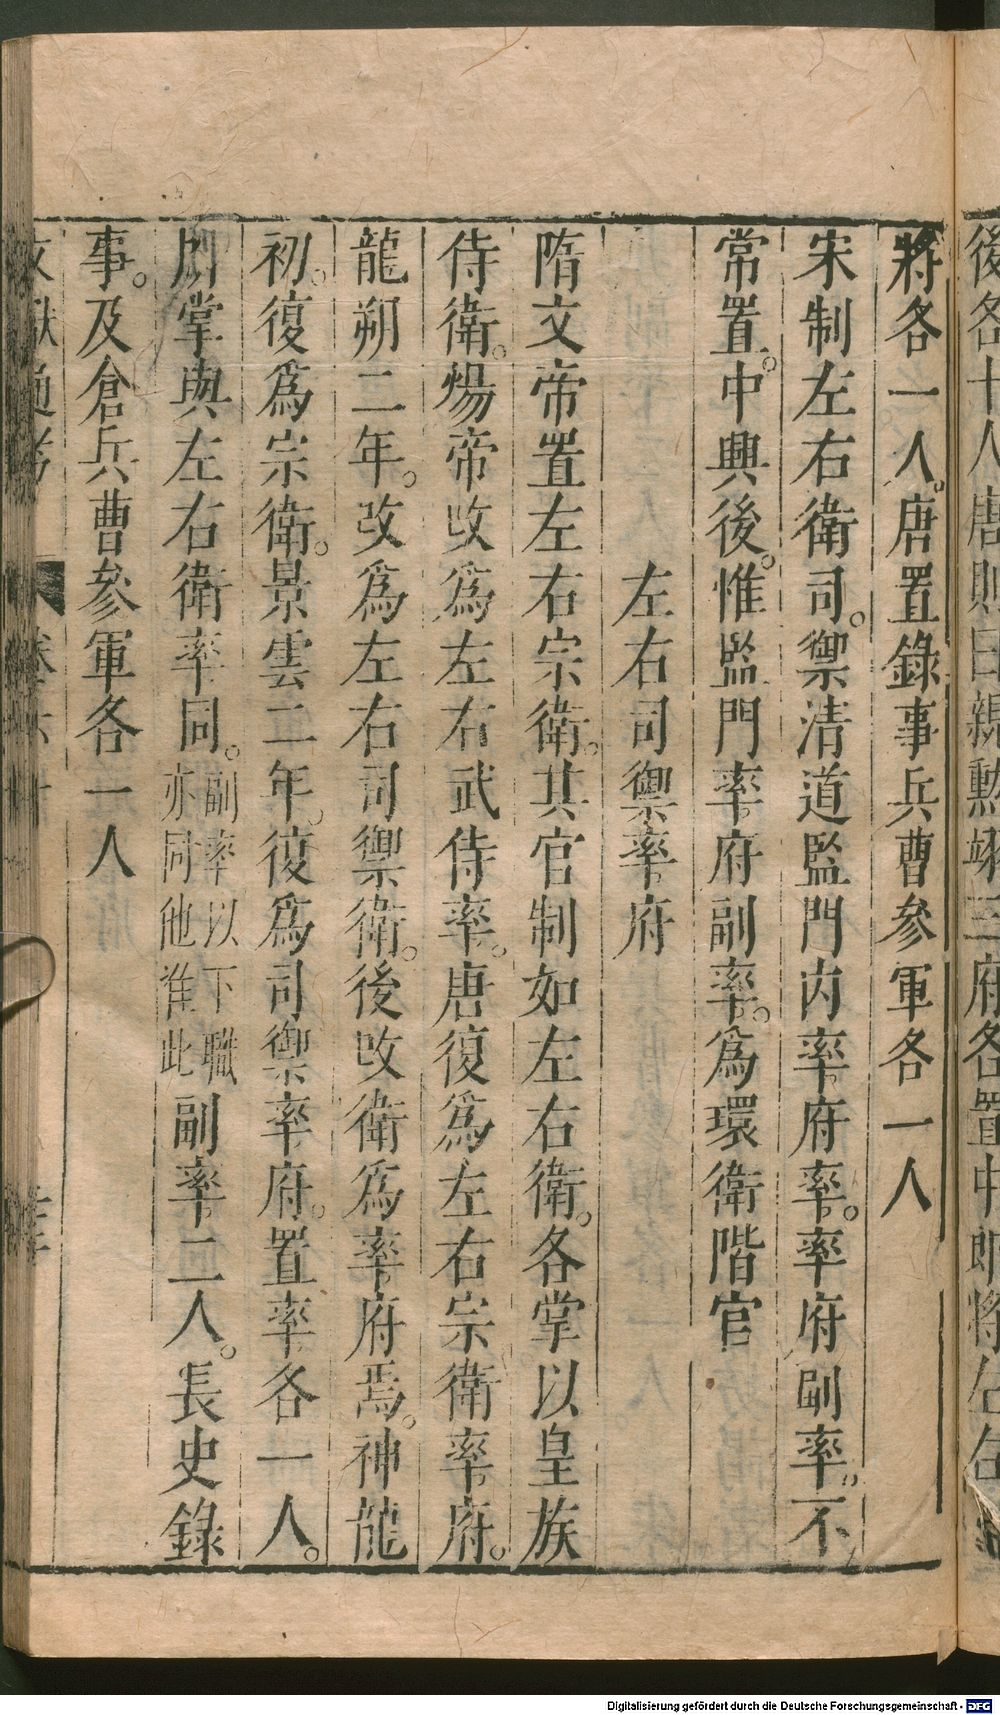 後各十人唐則曰親勲翊三府各置中郎將
將各一人。唐置錄事兵曹參軍各一人
宋制左右衛司。禦清道監門内率府率。率府副率。不
常置。中興後。惟監門率府副率。爲環衛階官
左右司禦率府
隋文帝置左右宗衛。其官制如左右衛。各掌以皇族
侍衛。煬帝改爲左右武侍率。唐復爲左右宗衛率府。
龍朔二年。改爲左右司禦衛。後改衛爲率府焉。神龍
初。復爲宗衛。景雲二年。復爲司禦率府。置率各一人。
所掌與左右衛率同。副率以下職亦同他准此副率二人。長史錄
事。及倉兵曹參軍各一人
文獻通考 卷六十
Digitalisierung gefördert durch die Deutsche Forschungsgemeinschaft - DFG